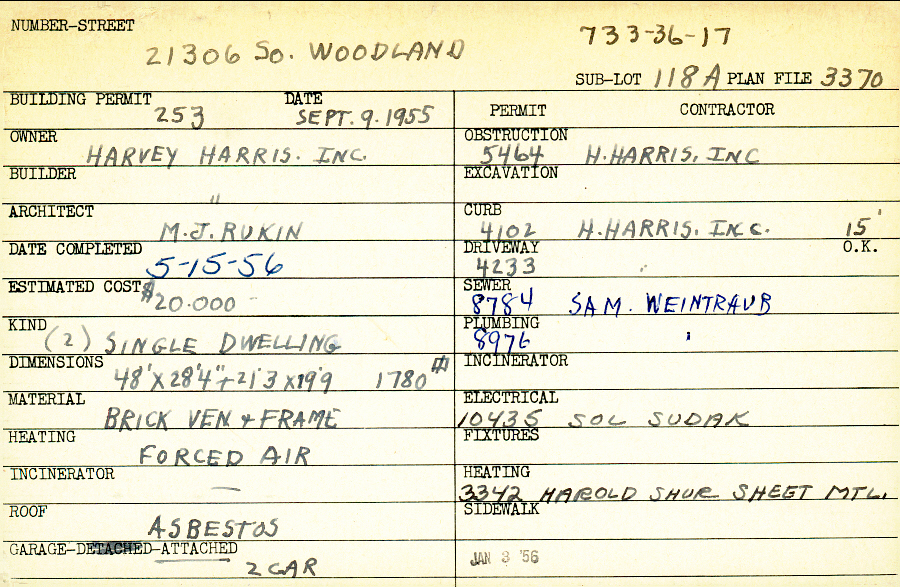 NUMBER-STREET
21306 SO. WOODLAND
733-36-17
SUB-LOT 118A PLAN FILE 3370
BUILDING PERMIT DATE
253 SEPT. 9. 1955
OWNER
HARVEY HARRIS. INC.
BUILDER
"
ARCHITECT
M.J. RUKIN
DATE COMPLETED
5-15-56
ESTIMATED COST
$20.000
KIND
(2) SINGLE DWELLING
DIMENSIONS
48'X28'4"+21'3 X19'9 1780#
MATERIAL
BRICK VEN + FRAME
HEATING
FORCED AIR
INCINERATOR
—
ROOF
ASBESTOS
GARAGE-DETACHED-ATTACHED
2 CAR
PERMIT CONTRACTOR
OBSTRUCTION
5464 H. HARRIS, INC
EXCAVATION
CURB
4102 H. HARRIS. INC. 15'
DRIVEWAY O.K.
4233
SEWER
8784 SAM. WEINTRAUB
PLUMBING
8976 "
INCINERATOR
ELECTRICAL
10435 SOL SUDAK
FIXTURES
HEATING
3342 HAROLD SHUR SHEET MTL.
SIDEWALK
JAN 3 '56